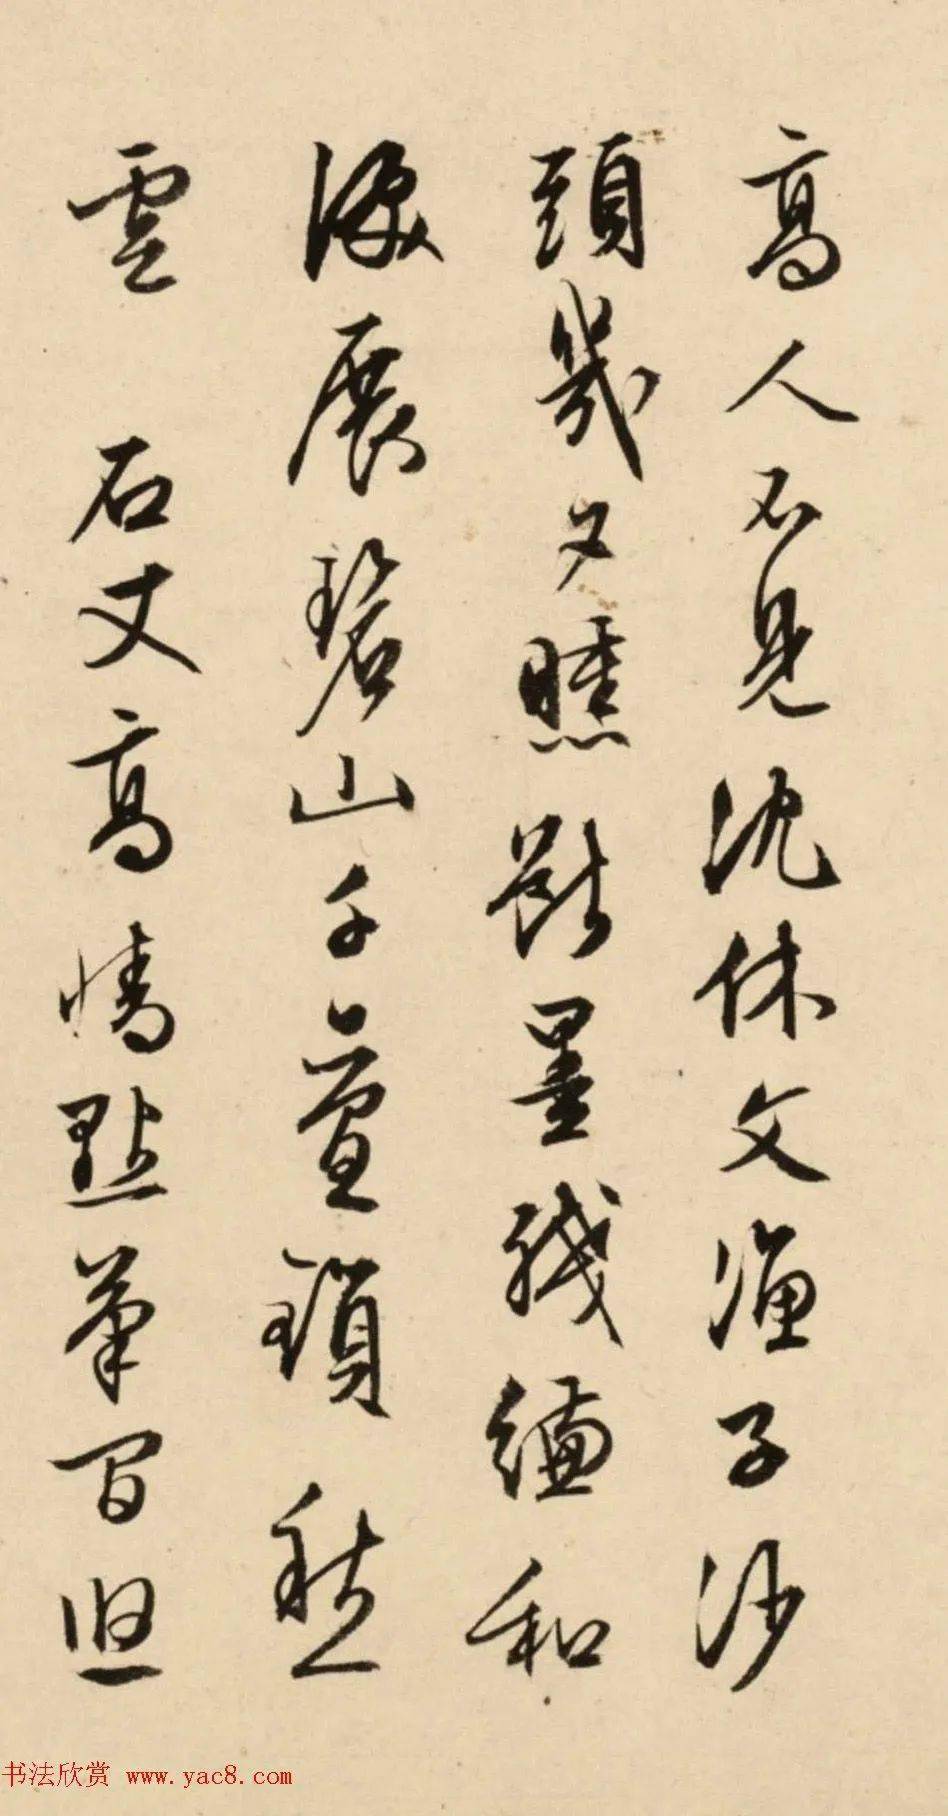 高人不見沈休文漁子沙
頭幾夕曛戲墨殘縑和
淚展碧山千疊鎖愁
雲 石丈高情點筆間思
书法欣赏 www.yac8.com